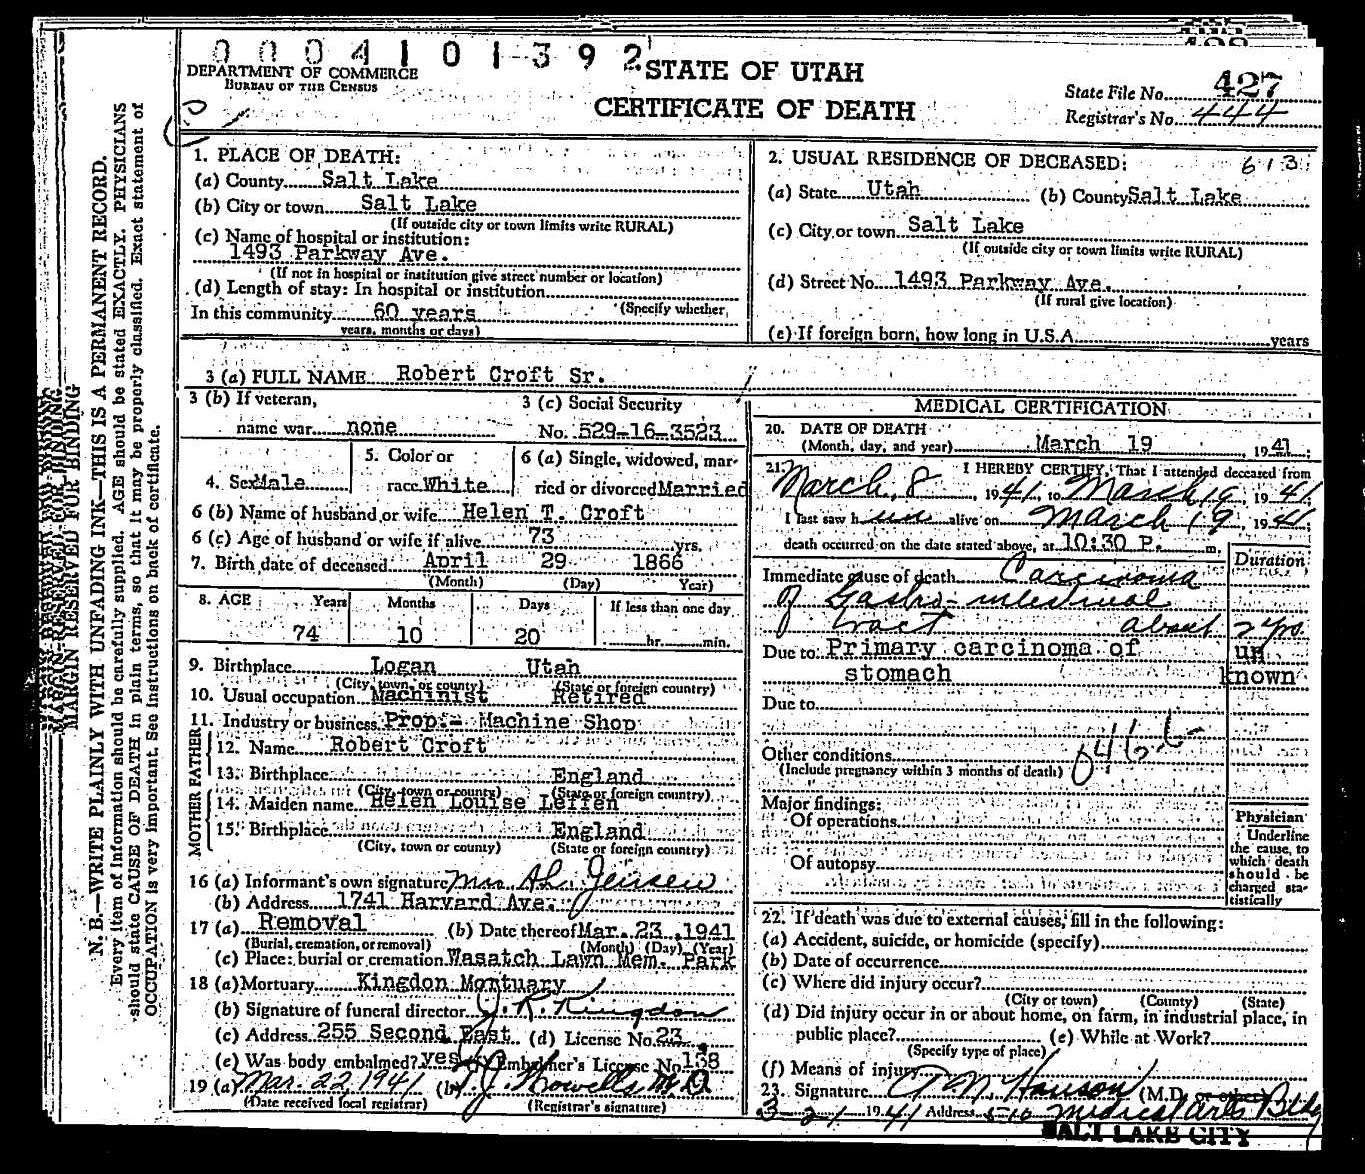 0004101392
DEPARTMENT OF COMMERCE
BUREAU OF THE CENSUS
STATE OF UTAH
CERTIFICATE OF DEATH
State File No. 427
Registrar's No. 444
N. B.—WRITE PLAINLY WITH UNFADING INK—THIS IS A PERMANENT RECORD.
Every item of information should be carefully supplied. AGE should be stated EXACTLY. PHYSICIANS
should state CAUSE OF DEATH in plain terms, so that it may be properly classified. Exact statement of
OCCUPATION is very important. See instructions on back of certificate.
MARGIN RESERVED FOR BINDING
1. PLACE OF DEATH:
(a) County Salt Lake
(b) City or town Salt Lake
(If outside city or town limits write RURAL)
(c) Name of hospital or institution:
1493 Parkway Ave.
(If not in hospital or institution give street number or location)
(d) Length of stay: In hospital or institution
(Specify whether,
In this community 60 years
years, months or days)
2. USUAL RESIDENCE OF DECEASED: 613
(a) State Utah (b) County Salt Lake
(c) City or town Salt Lake
(If outside city or town limits write RURAL)
(d) Street No. 1493 Parkway Ave.
(If rural give location)
(e) If foreign born, how long in U.S.A. years
3 (a) FULL NAME Robert Croft Sr.
3 (b) If veteran,
name war none
3 (c) Social Security
No. 529-16-3523
4. Sex Male
5. Color or
race White
6 (a) Single, widowed, mar-
ried or divorced Married
6 (b) Name of husband or wife Helen T. Croft
6 (c) Age of husband or wife if alive 73 yrs.
7. Birth date of deceased April 29 1866
(Month) (Day) Year)
8. AGE Years Months Days If less than one day
74 10 20 hr. min.
9. Birthplace Logan Utah
(City, town or county) (State or foreign country)
10. Usual occupation Machinist Retired
11. Industry or business Prop.- Machine Shop
FATHER
12. Name Robert Croft
13. Birthplace England
(City, town or county) (State or foreign country)
MOTHER
14. Maiden name Helen Louise Leffen
15. Birthplace England
(City, town or county) (State or foreign country)
16 (a) Informant's own signature Mrs. A.L. Jensen
(b) Address 1741 Harvard Ave.
17 (a) Removal (b) Date thereof Mar. 23, 1941
(Burial, cremation, or removal) (Month) (Day) (Year)
(c) Place: burial or cremation Wasatch Lawn Mem. Park
18 (a) Mortuary Kingdon Mortuary
(b) Signature of funeral director J. R. Kingdon
(c) Address 255 Second East (d) License No. 23
(e) Was body embalmed? yes (f) Embalmer's License No. 138
19 (a) Mar. 22, 1941 (b) T.J. Howells M.D.
(Date received local registrar) (Registrar's signature)
MEDICAL CERTIFICATION
20. DATE OF DEATH
(Month, day, and year) March 19 1941;
21. I HEREBY CERTIFY, That I attended deceased from
March, 8, 1941, to March 19, 1941.
I last saw h im alive on March 19, 1941
death occurred on the date stated above, at 10:30 P. m.
Duration
Immediate cause of death Carcinoma
of Gastro-intestinal
tract about 2 yrs.
Due to Primary carcinoma of un
stomach known
Due to
Other conditions 046 b
(Include pregnancy within 3 months of death)
Major findings:
Of operations
Of autopsy
Physician
Underline
the cause, to
which death
should be
charged sta-
tistically
22. If death was due to external causes, fill in the following:
(a) Accident, suicide, or homicide (specify)
(b) Date of occurrence
(c) Where did injury occur?
(City or town) (County) (State)
(d) Did injury occur in or about home, on farm, in industrial place, in
public place? (e) While at Work?
(Specify type of place)
(f) Means of injury
23. Signature (M.D. or other)
3-21 1941 Address 510 Medical Arts Bldg
SALT LAKE CITY